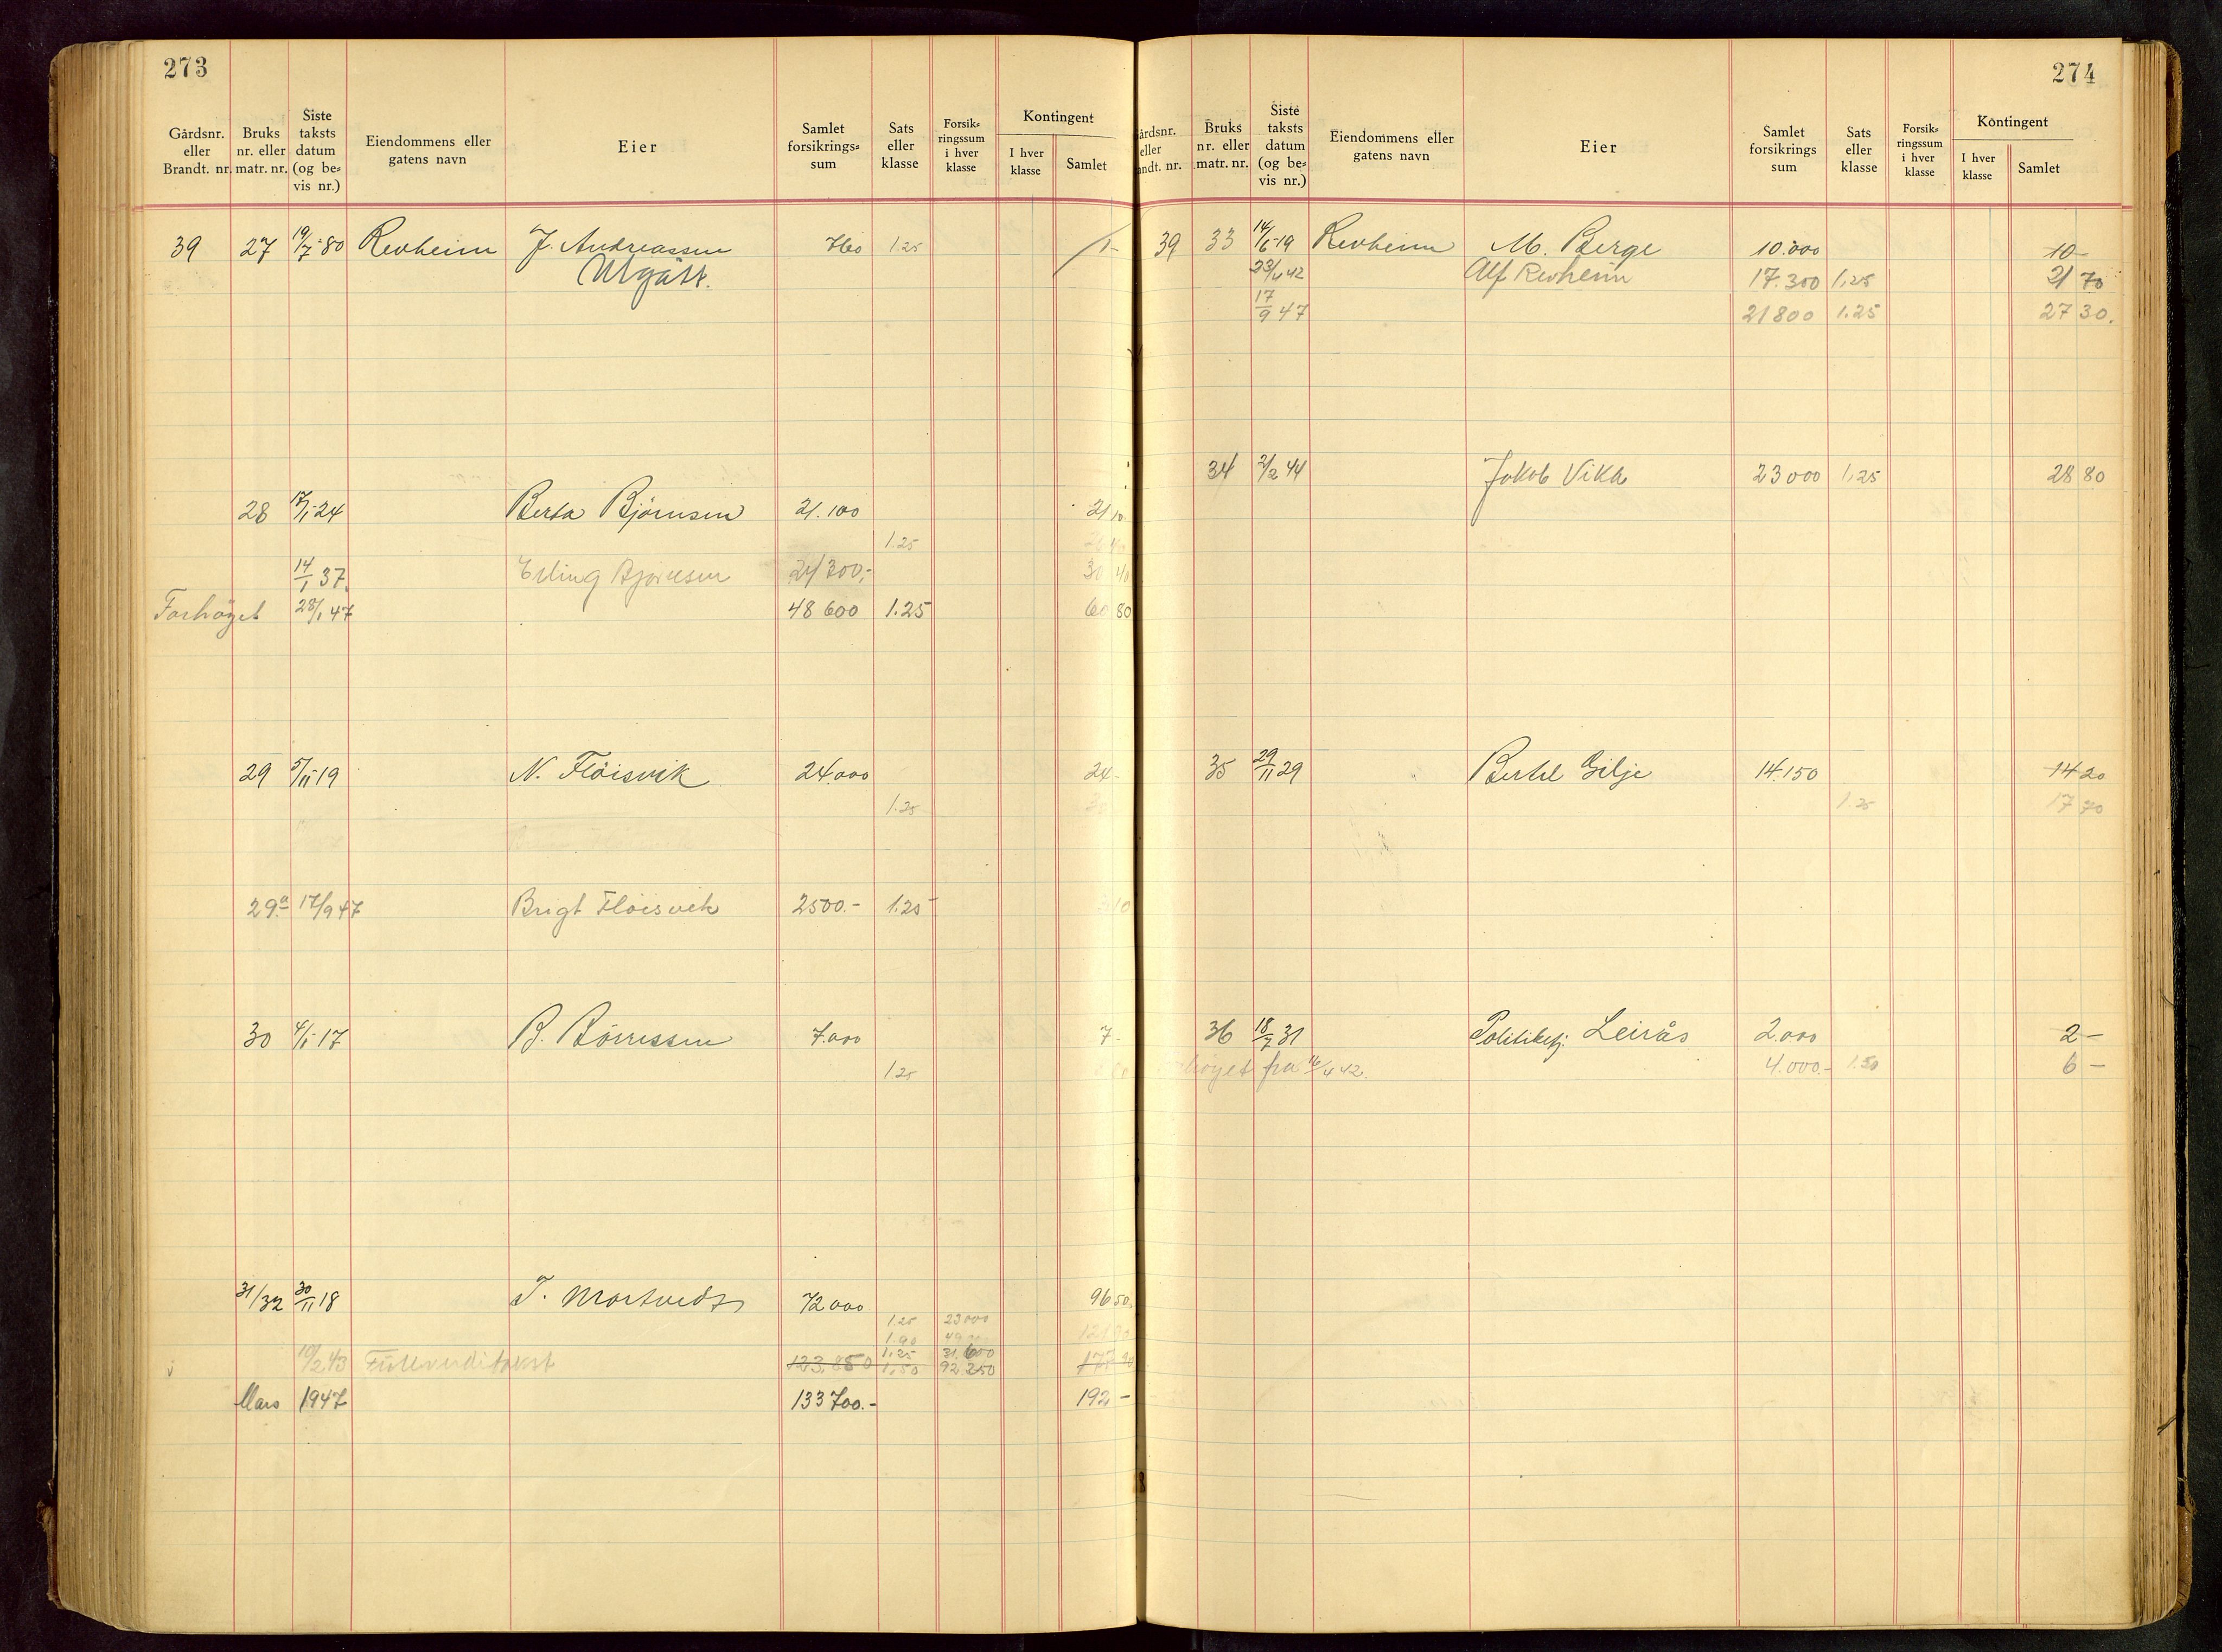 273
Gårdsnr. eller Brandt. nr. | Bruks nr. eller matr. nr. | Siste taksts datum (og be= vis nr.) | Eiendommens eller gatens navn | Eier | Samlet forsikrings= sum | Sats eller klasse | Forsik= ringssum i hver klasse | Kontingent I hver klasse | Samlet
39 27 19/7-80 Revheim J. Andreassen 760 1.25 1-
Utgått.
28 17/1-24 Berta Bjørnsen 21.100 21 10
1.25
14/1 37 Erling Bjørnsen 24300,- 30 40
Forhöyet 28/1 47 48 600 1.25 60 80
29 5/11-19 N. Flöisvik 24.000 24-
1.25
29a 17/9 47 Brigt Flöisvik 2500.- 1.25 3 10
30 4/1-17 B. Börressen 7.000 7-
1.25
31/32 30/11 18 T. Mortvedt 72000 96 50
1.25 23000
1.90
1,25 31,600
10/2 43 Fullverditakst 123,850 1,50 92250 177
Mars 1947 133700.- 192,-
274
Gårdsnr. eller andt. nr. | Bruks nr. eller matr. nr. | Siste taksts datum (og be= vis nr.) | Eiendommens eller gatens navn | Eier | Samlet forsikrings sum | Sats eller klasse | Forsik= ringssum i hver klasse | Kontingent I hver klasse | Samlet
39 33 14/6-19 Revheim M. Berge 10.000 10-
23/4 42 Alf Revheim 17.300 1,25 21 70
17/9 47 21800 1.25 27 30.
34 2/2 44 Jakob Vika 23000 1,25 28 80
35 29/11 29 " Bertel Gilje 14.150 14 20
1.25 17 70
36 18/7 31 Politibetj. Leirås 2.000 2-
höyet fra 16/4 42. 4.000.- 1.50 6-